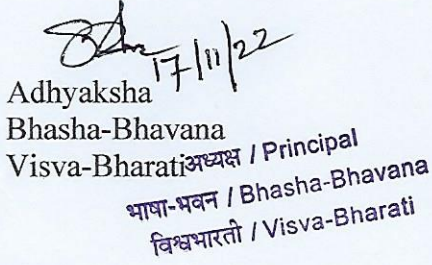 17/11/22
Adhyaksha
Bhasha-Bhavana
Visva-Bharati
अध्यक्ष / Principal
भाषा-भवन / Bhasha-Bhavana
विश्वभारती / Visva-Bharati